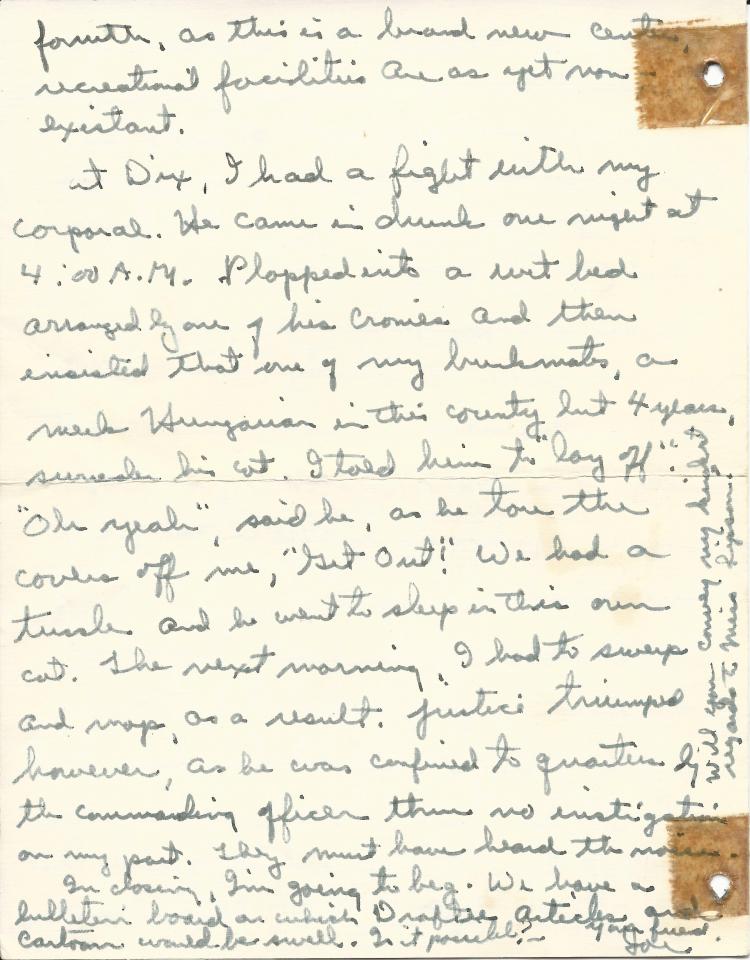 forwith, as this is a brand new center,
recreational facilities are as yet non
existant.
at Dix, I had a fight with my
corporal. He came in drunk one night at
4:00 A.M. Plopped into a wet bed
arranged by one of his cronies and then
insisted that one of my bunkmates, a
meek Hungarian in this country but 4 years,
surrender his cot. I told him to "lay off".
"Oh yeah", said he, as he tore the
covers off me, "Get Out!" We had a
tussle and he went to sleep in his own
cot. The next morning, I had to sweep
and mop, as a result. Justice triumped
however, as he was confined to quarters by
the commanding officer thru no instigation
on my part. They must have heard the noise.
In closing, I'm going to beg. We have a
bulletin board on which Draftee articles and
cartoons would be swell. Is it possible? -
Your friend.
Joe
Will you convey my kindest
regards to Miss